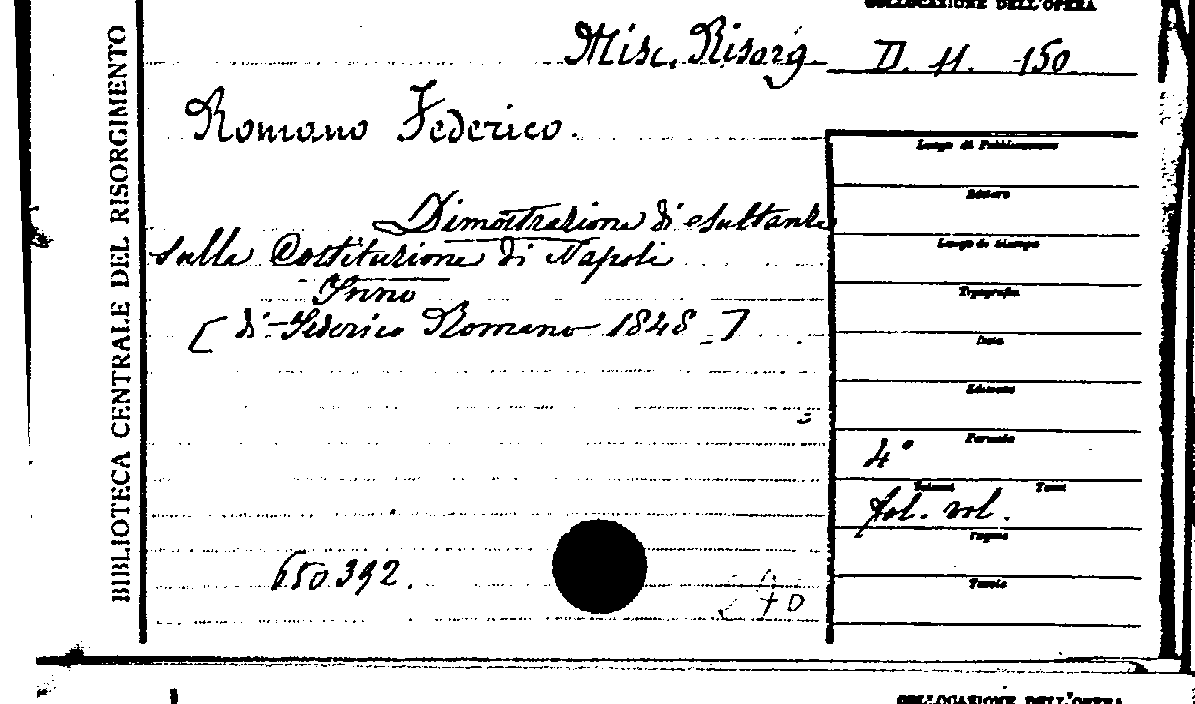 COLLOCAZIONE DELL'OPERA
Misc. Risorg. D. 11. 150
BIBLIOTECA CENTRALE DEL RISORGIMENTO
Romano Federico.
Luogo di Pubblicazione
Dimostrazione di esultanza
Editore
sulla Costituzione di Napoli
Luogo di Stampa
Inno
Tipografia
[ di Federico Romano 1848 ]
Data
Edizione
Formato
4°
Volumi Tomi
fol. vol.
Pagine
650392.
Tavole
COLLOCAZIONE DELL'OPERA